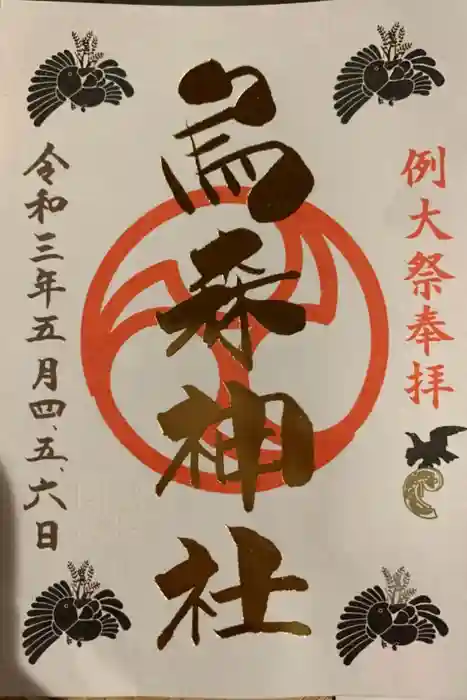 例大祭奉拝
烏森神社
令和三年五月四、五、六日